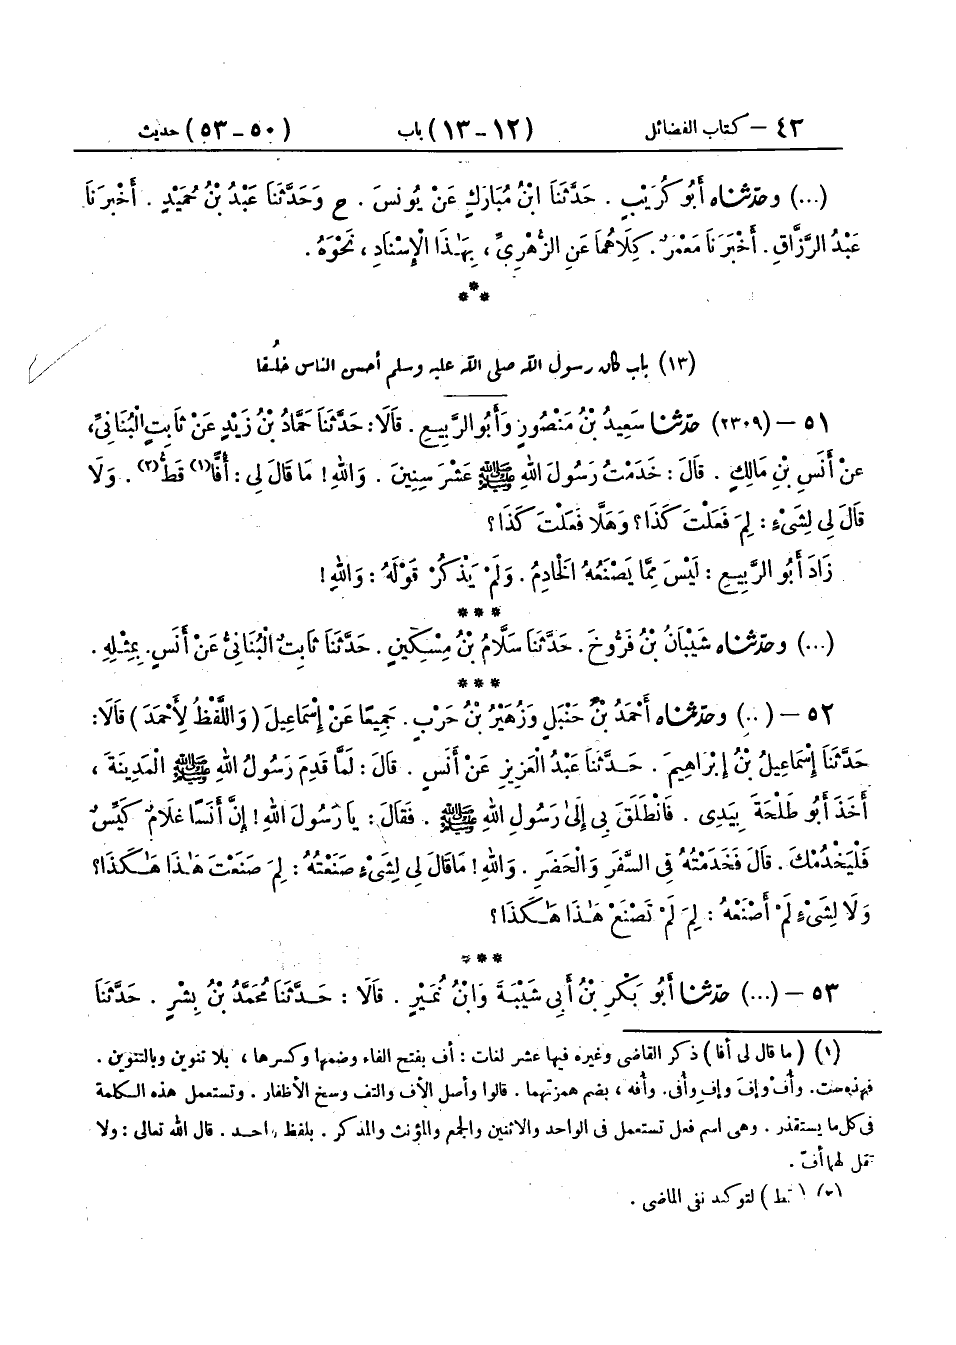 ٤٣ – كتاب الفضائل (١٢ – ١٣) باب (٥٠ – ٥٣) حديث
(...) وحدثناه أَبُو كُرَيْبٍ . حَدَّثَنَا ابْنُ مُبَارَكٍ عَنْ يُونُسَ . ح وَحَدَّثَنَا عَبْدُ بْنُ حُمَيْدٍ . أَخْبَرَنَا
عَبْدُ الرَّزَّاقِ . أَخْبَرَنَا مَعْمَرٌ . كِلَاهُمَا عَنِ الزُّهْرِيِّ ، بِهَٰذَا الْإِسْنَادِ ، نَحْوَهُ .
***
(١٣) باب كان رسول الله صلى الله عليه وسلم أحسن الناس خلُقا
٥١ – (٢٣٠٩) حدثنا سَعِيدُ بْنُ مَنْصُورٍ وَأَبُو الرَّبِيعِ . قَالَا : حَدَّثَنَا حَمَّادُ بْنُ زَيْدٍ عَنْ ثَابِتٍ الْبُنَانِيِّ ،
عَنْ أَنَسِ بْنِ مَالِكٍ . قَالَ : خَدَمْتُ رَسُولَ اللهِ ﷺ عَشْرَ سِنِينَ . وَاللهِ ! مَا قَالَ لِي : أُفًّا(١) قَطُّ(٢) . وَلَا
قَالَ لِي لِشَيْءٍ : لِمَ فَعَلْتَ كَذَا ؟ وَهَلَّا فَعَلْتَ كَذَا ؟
زَادَ أَبُو الرَّبِيعِ : لَيْسَ مِمَّا يَصْنَعُهُ الْخَادِمُ . وَلَمْ يَذْكُرْ قَوْلَهُ : وَاللهِ !
***
(...) وحدثناه شَيْبَانُ بْنُ فَرُّوخَ . حَدَّثَنَا سَلَّامُ بْنُ مِسْكِينٍ . حَدَّثَنَا ثَابِتٌ الْبُنَانِيُّ عَنْ أَنَسٍ . بِمِثْلِهِ .
***
٥٢ – (...) وحدثناه أَحْمَدُ بْنُ حَنْبَلٍ وَزُهَيْرُ بْنُ حَرْبٍ . جَمِيعًا عَنْ إِسْمَاعِيلَ ( وَاللَّفْظُ لِأَحْمَدَ ) قَالَا :
حَدَّثَنَا إِسْمَاعِيلُ بْنُ إِبْرَاهِيمَ . حَدَّثَنَا عَبْدُ الْعَزِيزِ عَنْ أَنَسٍ . قَالَ : لَمَّا قَدِمَ رَسُولُ اللهِ ﷺ الْمَدِينَةَ ،
أَخَذَ أَبُو طَلْحَةَ بِيَدِي . فَانْطَلَقَ بِي إِلَىٰ رَسُولِ اللهِ ﷺ . فَقَالَ : يَا رَسُولَ اللهِ ! إِنَّ أَنَسًا غُلَامٌ كَيِّسٌ
فَلْيَخْدُمْكَ . قَالَ فَخَدَمْتُهُ فِي السَّفَرِ وَالْحَضَرِ . وَاللهِ ! مَا قَالَ لِي لِشَيْءٍ صَنَعْتُهُ : لِمَ صَنَعْتَ هَٰذَا هَٰكَذَا ؟
وَلَا لِشَيْءٍ لَمْ أَصْنَعْهُ : لِمَ لَمْ تَصْنَعْ هَٰذَا هَٰكَذَا ؟
***
٥٣ – (...) حدثنا أَبُو بَكْرِ بْنُ أَبِي شَيْبَةَ وَابْنُ نُمَيْرٍ . قَالَا : حَدَّثَنَا مُحَمَّدُ بْنُ بِشْرٍ . حَدَّثَنَا
(١) ( ما قال لى أفا ) ذكر القاضى وغيره فيها عشر لغات : أف بفتح الفاء وضمها وكسرها ، بلا تنوين وبالتنوين .
فهذه ست. وأُفْ وإفَ وإفِ وأُفى. وأُفه ، بضم همزتهما . قالوا وأصل الأف والتف وسخ الأظفار . وتستعمل هذه الكلمة
فى كل ما يستقذر . وهى اسم فعل تستعمل فى الواحد والاثنين والجمع والمؤنث والمذكر . بلفظ واحد . قال الله تعالى : ولا
تقل لهما أفّ .
(٢) ( قط ) لتوكيد نفى الماضى .